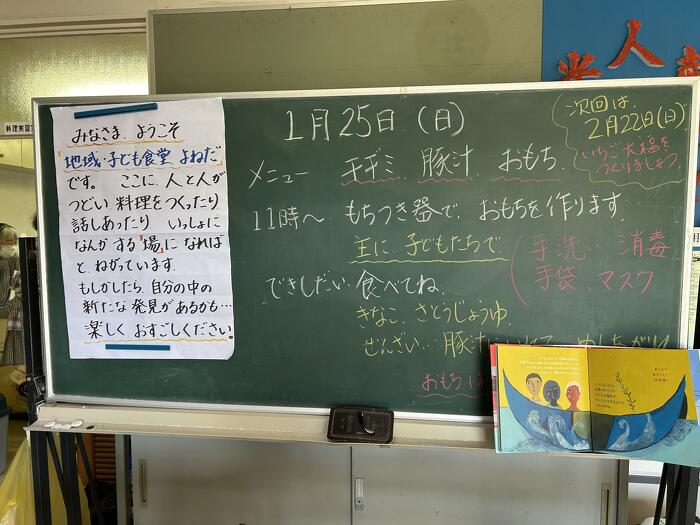 みなさま、ようこそ
地域・子ども食堂 よねだ
です。 ここに 人と人が
つどい 料理をつくったり
話しあったり いっしょに
なんか する「場」に なれば
と ねがっています.
もしかしたら、自分の中の
新たな 発見があるかも…
楽しく おすごしください。
1月25日 (日)
メニュー チヂミ 豚汁 おもち
11時〜 もちつき器で おもちを作ります.
主に 子どもたちで
手洗い 消毒
手袋 マスク
できしだい 食べてね.
きなこ、さとうじょうゆ、
ぜんざい… 豚汁
おもちは
次回は、
2月22日(日)
いちご大福を
つくりましょう.
料理実習
人